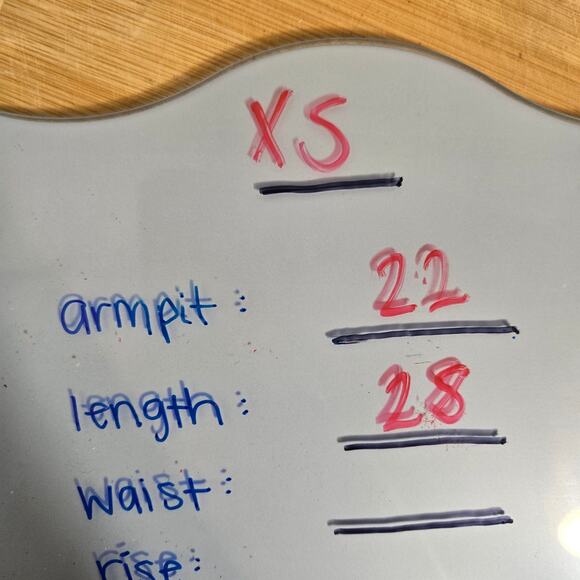 XS
armpit: 22
length: 28
waist:
rise: